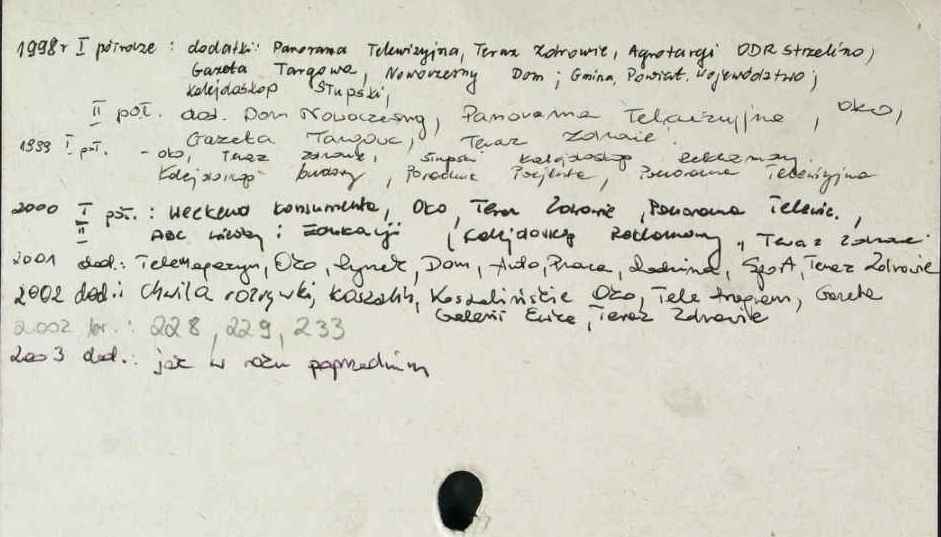 1998 r I półrocze : dodatki: Panorama Telewizyjna, Teraz Zdrowie, Agrotargi ODR Strzelino,
Gazeta Targowa, Nowoczesny Dom; Gmina, Powiat, Województwo;
Kalejdoskop Słupski,
II poł. dod. Dom Nowoczesny, Panorama Telewizyjna, Oko,
Gazeta Targowa, Teraz Zdrowie.
1999 I poł. - oko, Teraz zdrowie, Słupski Kalejdoskop reklamowy
Kalejdoskop budowy, Poradnik Panorama Telewizyjna
2000 I poł. : Weekend konsumenta, Oko, Teraz Zdrowie, Panorama Telewiz.,
II ABC wiedzy i Edukacji, Kalejdoskop Reklamowy, Teraz Zdrowie
2001 dod.: TeleMagazyn, Oko, Rynek, Dom, Auto, Praca, Rodzina, Sport, Teraz Zdrowie
2002 dod.: Chwila rozrywki, Koszalin, Koszalińskie Oko, Tele program, Gazeta
Galerii Emka, Teraz Zdrowie
2002 br.: 228, 229, 233
2003 dod.: jak w roku poprzednim